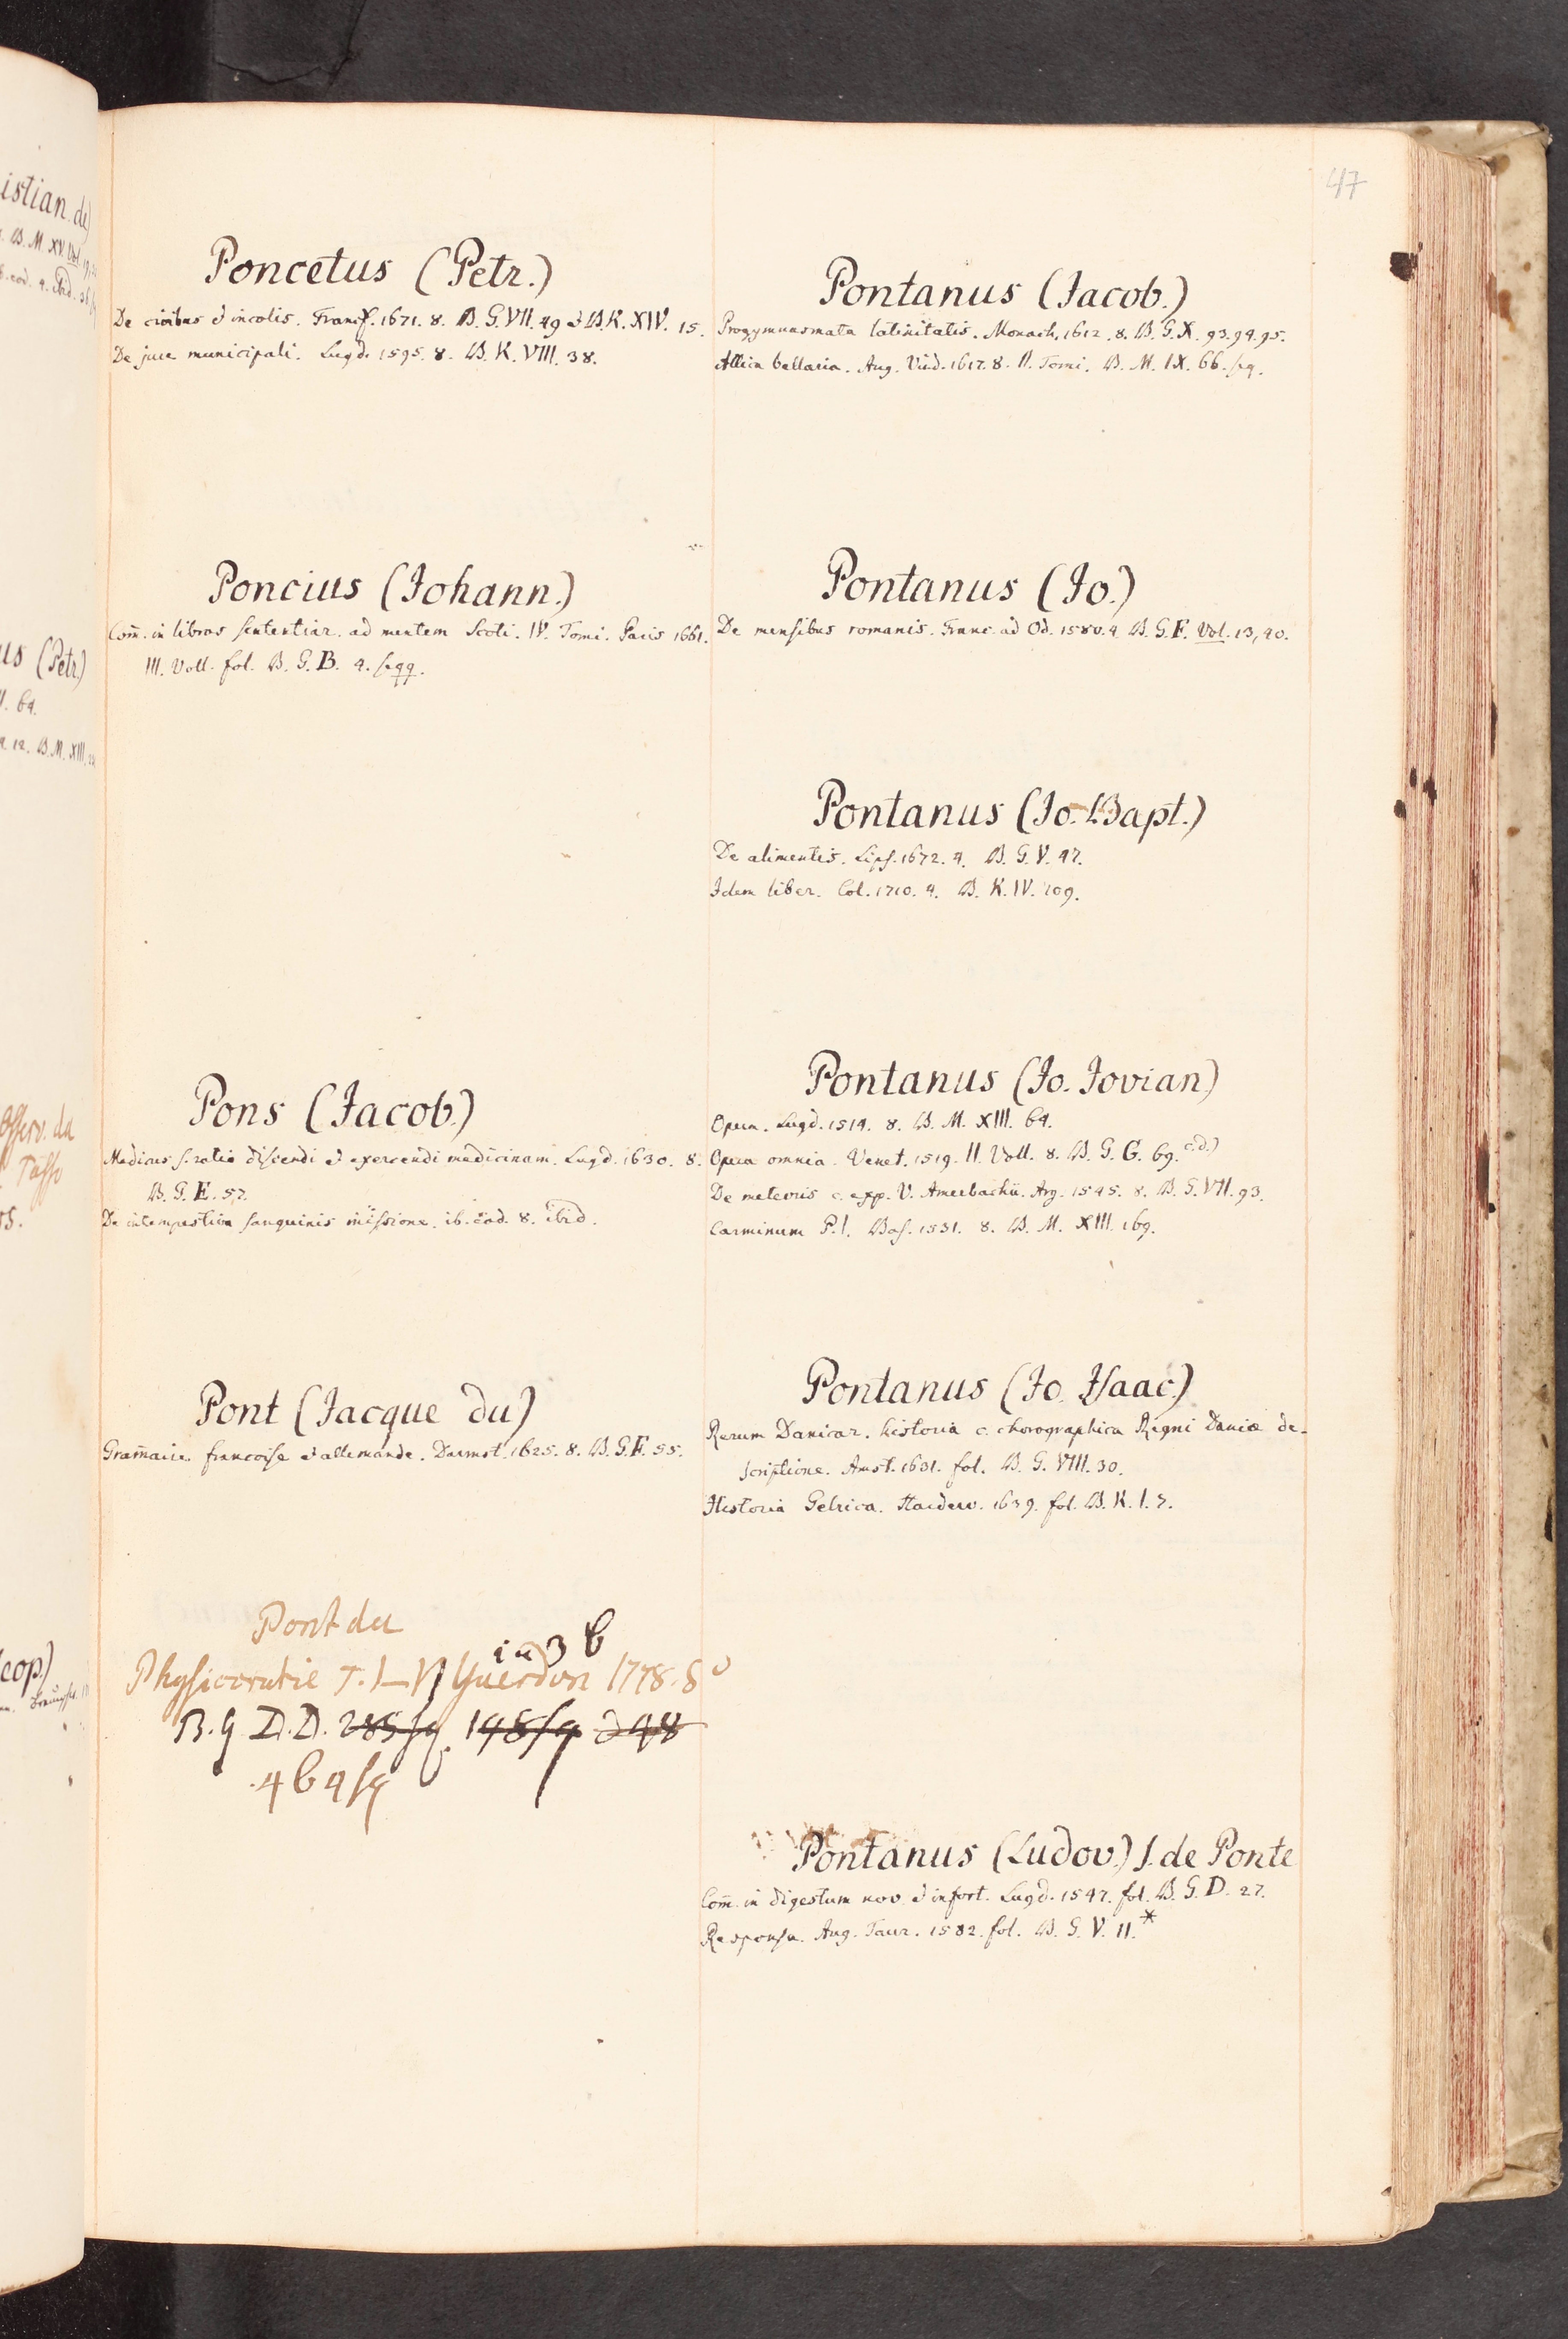 47
Poncetus (Petr.)
De civibus & incolis. Francf. 1671. 8. B. G. VII. 49 & B. K. XIV. 15.
De jure municipali. Lugd. 1595. 8. B. K. VIII. 38.
Poncius (Johann.)
Com̄. in libros sententiar. ad mentem Scoti. IV. Tomi. Paris 1661.
III. Voll. fol. B. G. B. 4. seqq.
Pons (Jacob.)
Medicus s. ratio discendi & exercendi medicinam. Lugd. 1630. 8.
B. G. E. 57.
De intempestiva sanguinis missione. ib. eod. 8. ibid.
Pont (Jacque du)
Gram̄aire francoise & allemande. Darmst. 1625. 8. B. G. F. 55.
Pont du
in 3 b
Physiocratie T. I–VI Yuerdon 1778. 8º
B. G D. D. 285 sq. 148 sq & 48
4 b 4 sq
Pontanus (Jacob.)
Progymnasmata latinitatis. Monach. 1612. 8. B. G. X. 93. 94. 95.
Attica bellaria. Aug. Vind. 1617. 8. II. Tomi. B. M. IX. 66. sq.
Pontanus (Jo.)
De mensibus romanis. Franc. ad Od. 1580. 4 B. G. F. Vol. 13, 40.
Pontanus (Jo. Bapt.)
De alimentis. Lips. 1672. 4. B. G. V. 47.
Idem liber. Col. 1710. 4. B. K. IV. 109.
Pontanus (Jo. Jovian)
Opera. Lugd. 1514. 8. B. M. XIII. 64.
Opera omnia. Venet. 1519. II. Voll. 8. B. G. G. 69. c. d.)
De meteoris c. exp. V. Amerbachii. Arg. 1545. 8. B. G. VII. 93.
Carminum P. I. Bas. 1531. 8. B. M. XIII. 169.
Pontanus (Jo. Isaac.)
Rerum Danicar. historia c. chorographica Regni Daniæ de-
scriptione. Amst. 1631. fol. B. G. VIII. 30.
Historia Gelrica. Harderv. 1639. fol. B. K. I. 7.
Pontanus (Ludov.) s. de Ponte
Com̄. in digestum nov. & infort. Lugd. 1547. fol. B. G. D. 27.
Responsa. Aug. Taur. 1582. fol. B. G. V. 11.*